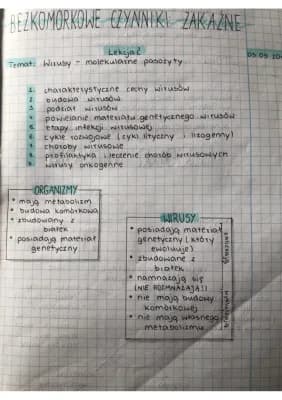 BEZKOMÓRKOWE CZYNNIKI ZAKAŹNE
Lekcja 2
Temat: Wirusy - molekularne pasożyty.
1. charakterystyczne cechy wirusów
2. budowa wirusów
3. podział wirusów
4. powielanie materiału genetycznego wirusów
5. etapy infekcji wirusowej
6. cykle rozwojowe (cykl lityczny i lizogenny)
7. choroby wirusowe
8. profilaktyka i leczenie chorób wirusowych
9. wirusy onkogenne
ORGANIZMY
• mają metabolizm
• budowa komórkowa
• zbudowany z
białek
• posiadają materiał
genetyczny
WIRUSY
• posiadają materiał
genetyczny (który
ewoluuje)
• zbudowane z
białek
• namnażają się
(NIE ROZMNAŻAJĄ!)
• nie mają budowy
komórkowej
• nie mają własnego
metabolizmu